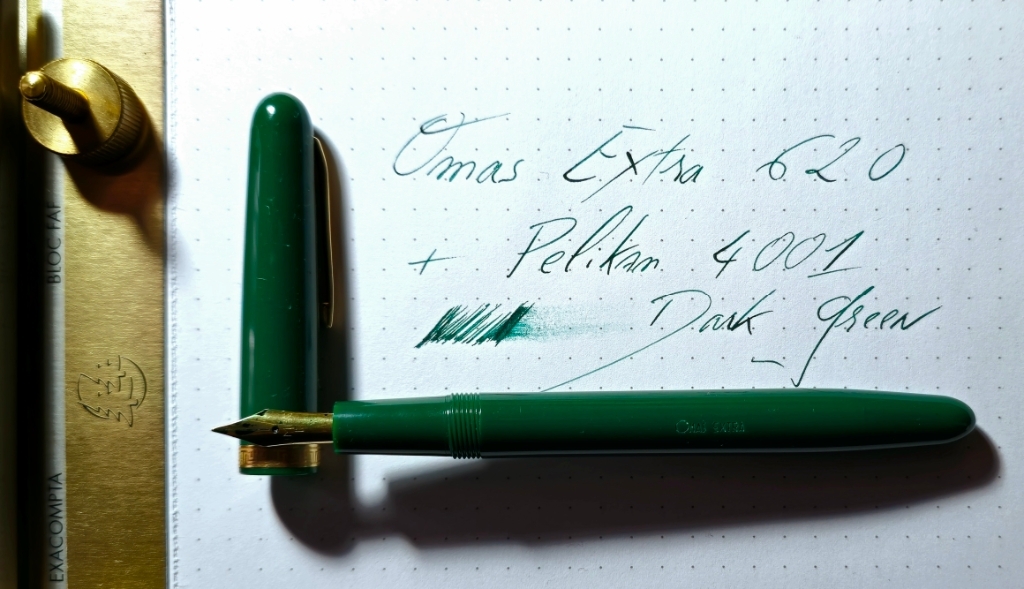 Omas Extra 620
+ Pelikan 4001
Dark green
OMAS EXTRA
BLOC FAF
EXACOMPTA